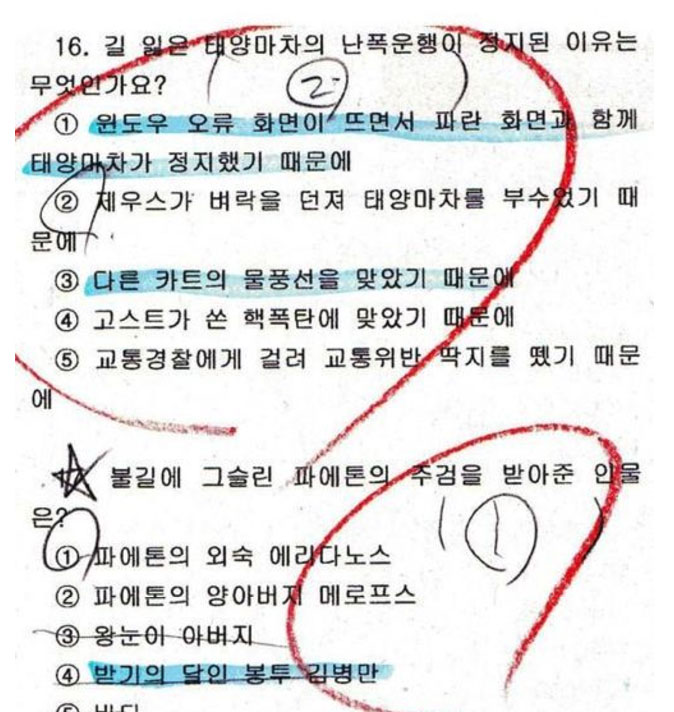 16. 길 잃은 태양마차의 난폭운행이 정지된 이유는
무엇인가요?
( ② )
① 윈도우 오류 화면이 뜨면서 파란 화면과 함께
태양마차가 정지했기 때문에
② 제우스가 벼락을 던져 태양마차를 부수었기 때
문에
③ 다른 카트의 물풍선을 맞았기 때문에
④ 고스트가 쏜 핵폭탄에 맞았기 때문에
⑤ 교통경찰에게 걸려 교통위반 딱지를 뗐기 때문
에
불길에 그슬린 파에톤의 주검을 받아준 인물
은?
( ① )
① 파에톤의 외숙 에리다노스
② 파에톤의 양아버지 메로프스
③ 왕눈이 아버지
④ 받기의 달인 봉투 김병만
⑤